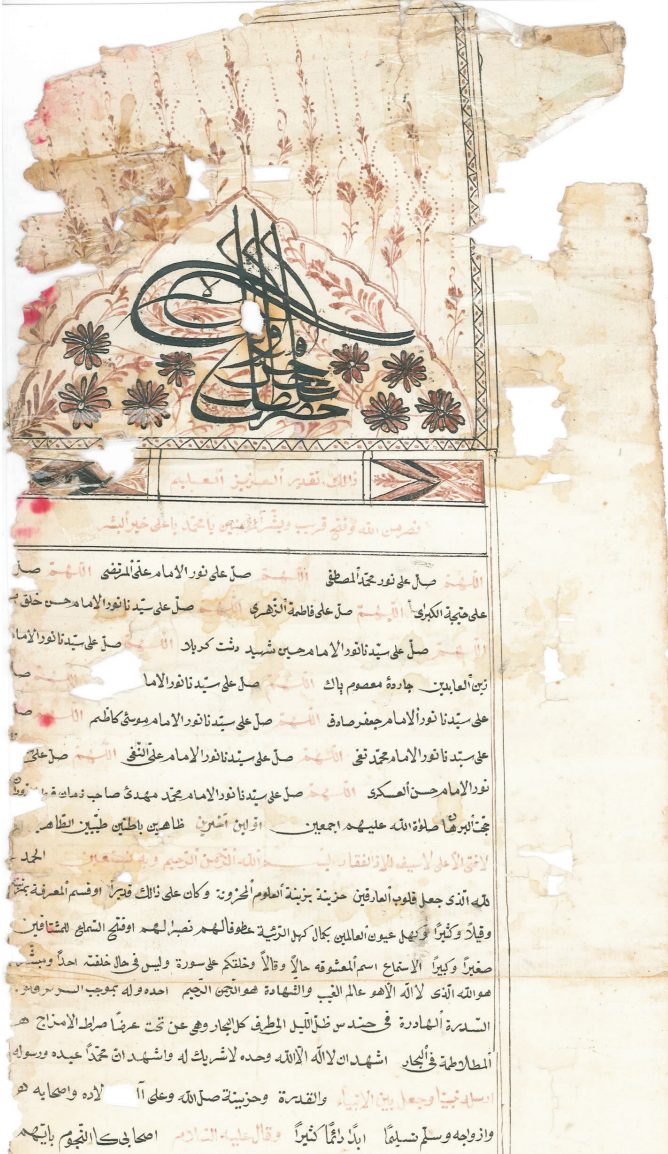 ذالك تقدير العزيز العليم
نصر من الله وفتح قريب وبشّر المؤمنين يا محمّد يا على خير البشر
اللّهمّ صلّ على نور محمّد المصطفى اللّهمّ صلّ على نور الامام على المرتضى اللّهمّ صلّ
على خديجة الكبرى اللّهمّ صلّ على فاطمة الزّهرى اللّهمّ صلّ على سيّدنا نور الامام حسن خلق
اللّهمّ صلّ على سيّدنا نور الامام حسين شهيد دشت كربلا اللّهمّ صلّ على سيّدنا نور الاما
زين العابدين چاردۀ معصوم پاك اللّهمّ صلّ على سيّدنا نور الاما
على سيّدنا نور الامام جعفر صادق اللّهمّ صلّ على سيّدنا نور الامام موسى كاظم اللّهمّ
على سيّدنا نور الامام محمّد تقى اللّهمّ صلّ على سيّدنا نور الامام على النّقى اللّهمّ صلّ على
نور الامام حسن العسكرى اللّهمّ صلّ على سيّدنا نور الامام محمّد مهدى صاحب زمان
صلوٰة الله عليهم اجمعين اوّلين آخرين ظاهرين باطنين طيّبين الطّاهر
لا فتى الّا على لا سيف الّا ذو الفقار بسم الله الرّحمن الرّحيم وبه نستعين الحمد
لله الّذى جعل قلوب العارفين خزينة بزينة العلوم المخزونة وكان على ذالك قديرًا او قسم المعرفة
وقيلًا وكثيرًا وكهل عيون العالمين بكمال كهل الرّئية عطوفا لهم نصيرا لهم اوفتح السّماع للمشتاقين
صغيرًا وكبيرًا الاستماع اسم المعشوقه حالًا وقالًا وخلقكم على سورة وليس فى حال خلقته احدًا
هو الله الّذى لا اله الّا هو عالم الغيب والشّهادة هو الرّحمن الرّحيم احده وله بموجب
السّدرة الهادرة فى حندس ظلّ اللّيل كلّ البحار وهى عن تحت عرضًا صراط الامزاج
المطلاطمة فى البحار اشهد ان لا اله الّا الله وحده لا شريك له واشهد ان محمّدًا عبده ورسوله
ارسله نبيّا وجعل بين الانبياء والقدرة وخزينة صلّ الله وعلى آ لاده واصحابه
وازواجه وسلّم تسليمًا ابدًا دائمًا كثيرًا وقال عليه السّلام اصحابى كا النّجوم بايّهم